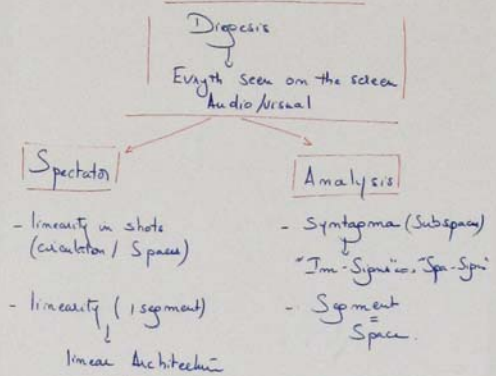 Diegesis
Evryth seen on the screen
Audio/visual
Spectator
- linearity in shots
(circulation / Spaces)
- linearity (1 segment)
linear Architecture
Analysis
- Syntagma (Subspaces)
"Im-Signs" "Spa-Signs"
- Segment
=
Space.